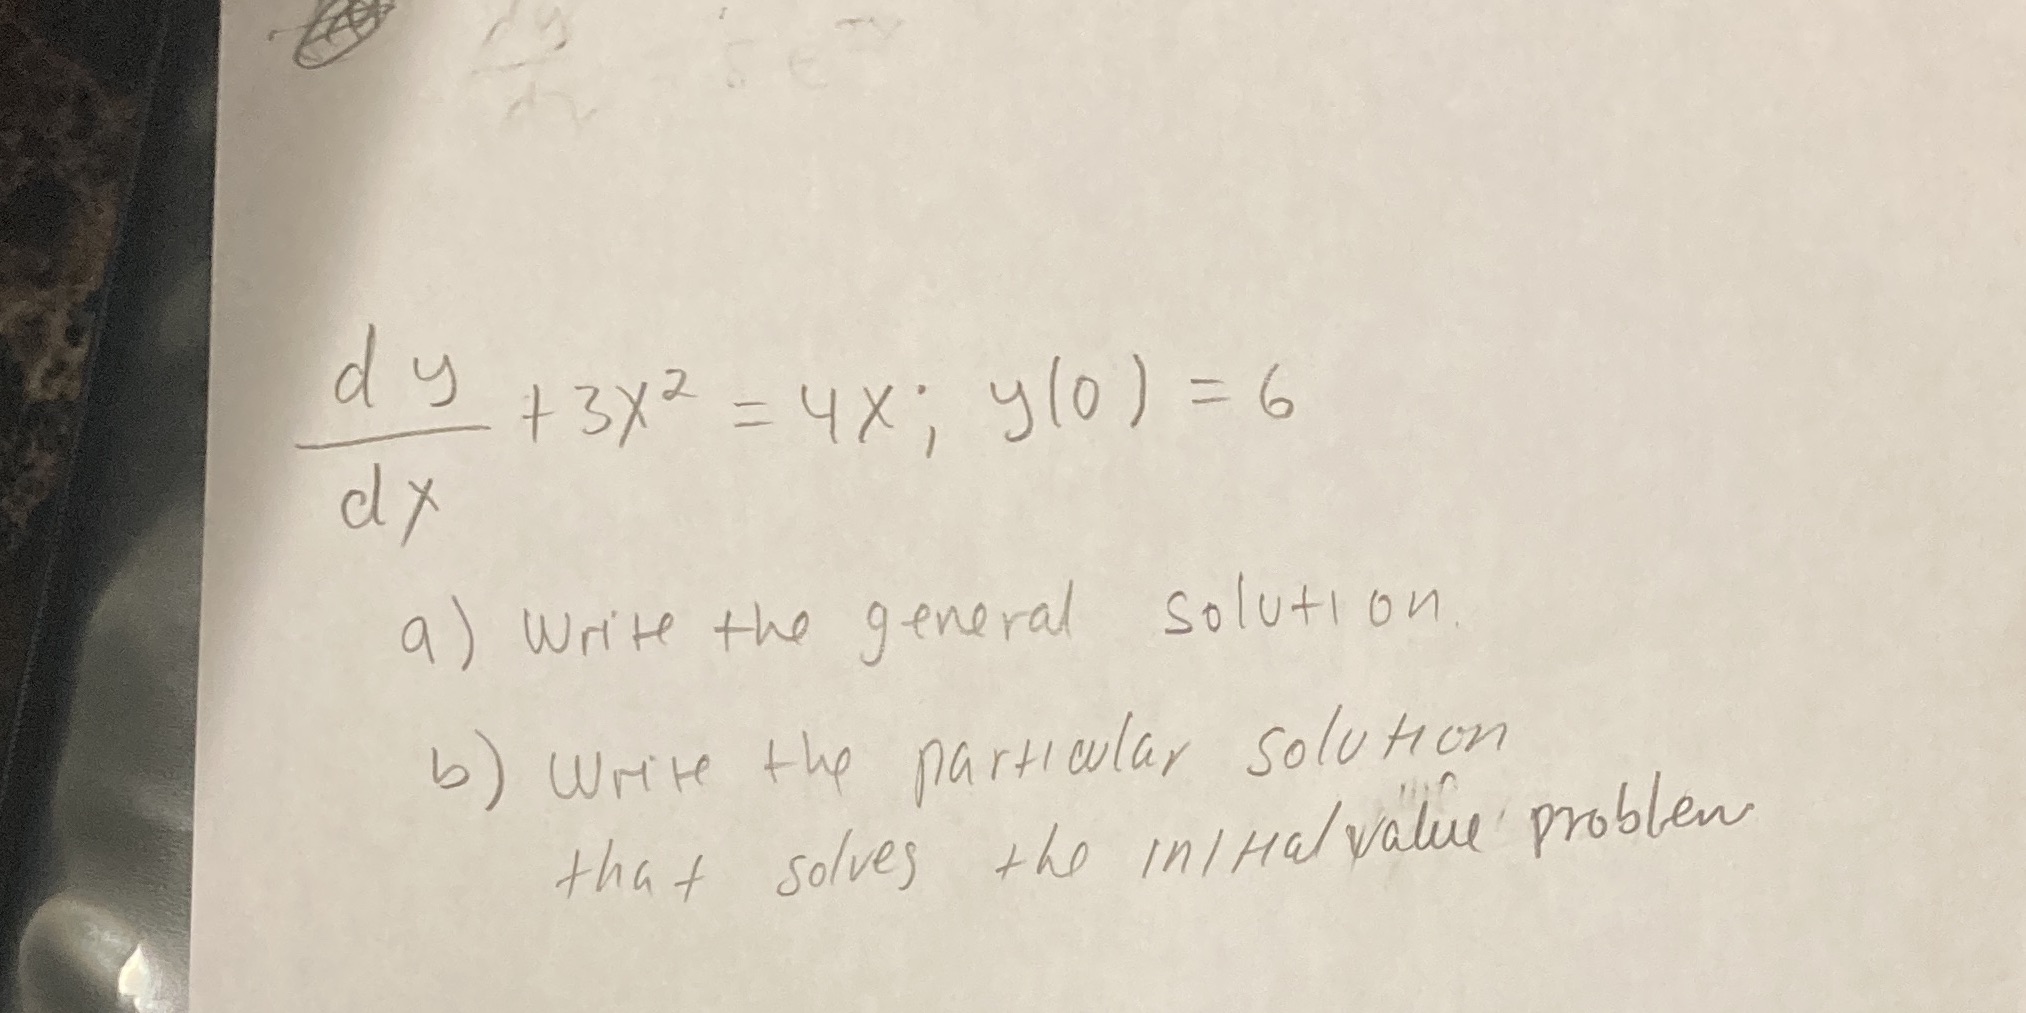 dy/dx + 3x² = 4x; y(0) = 6
a) Write the general solution.
b) Write the particular solution
that solves the initial value problem